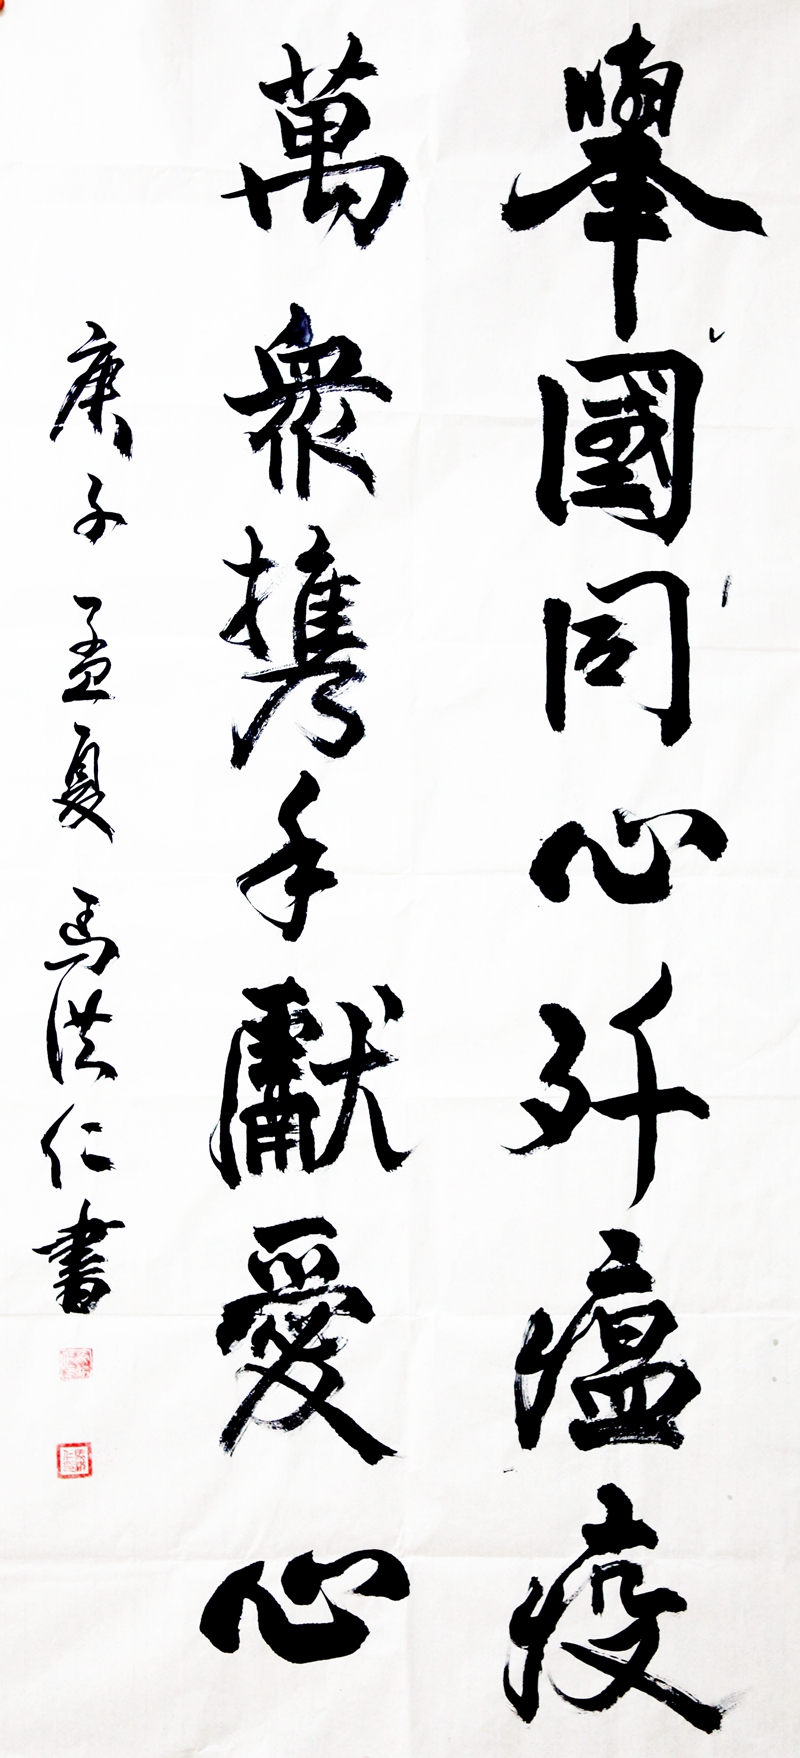 舉國同心歼瘟疫
萬衆携手獻愛心
庚子孟夏 馬洪仁書